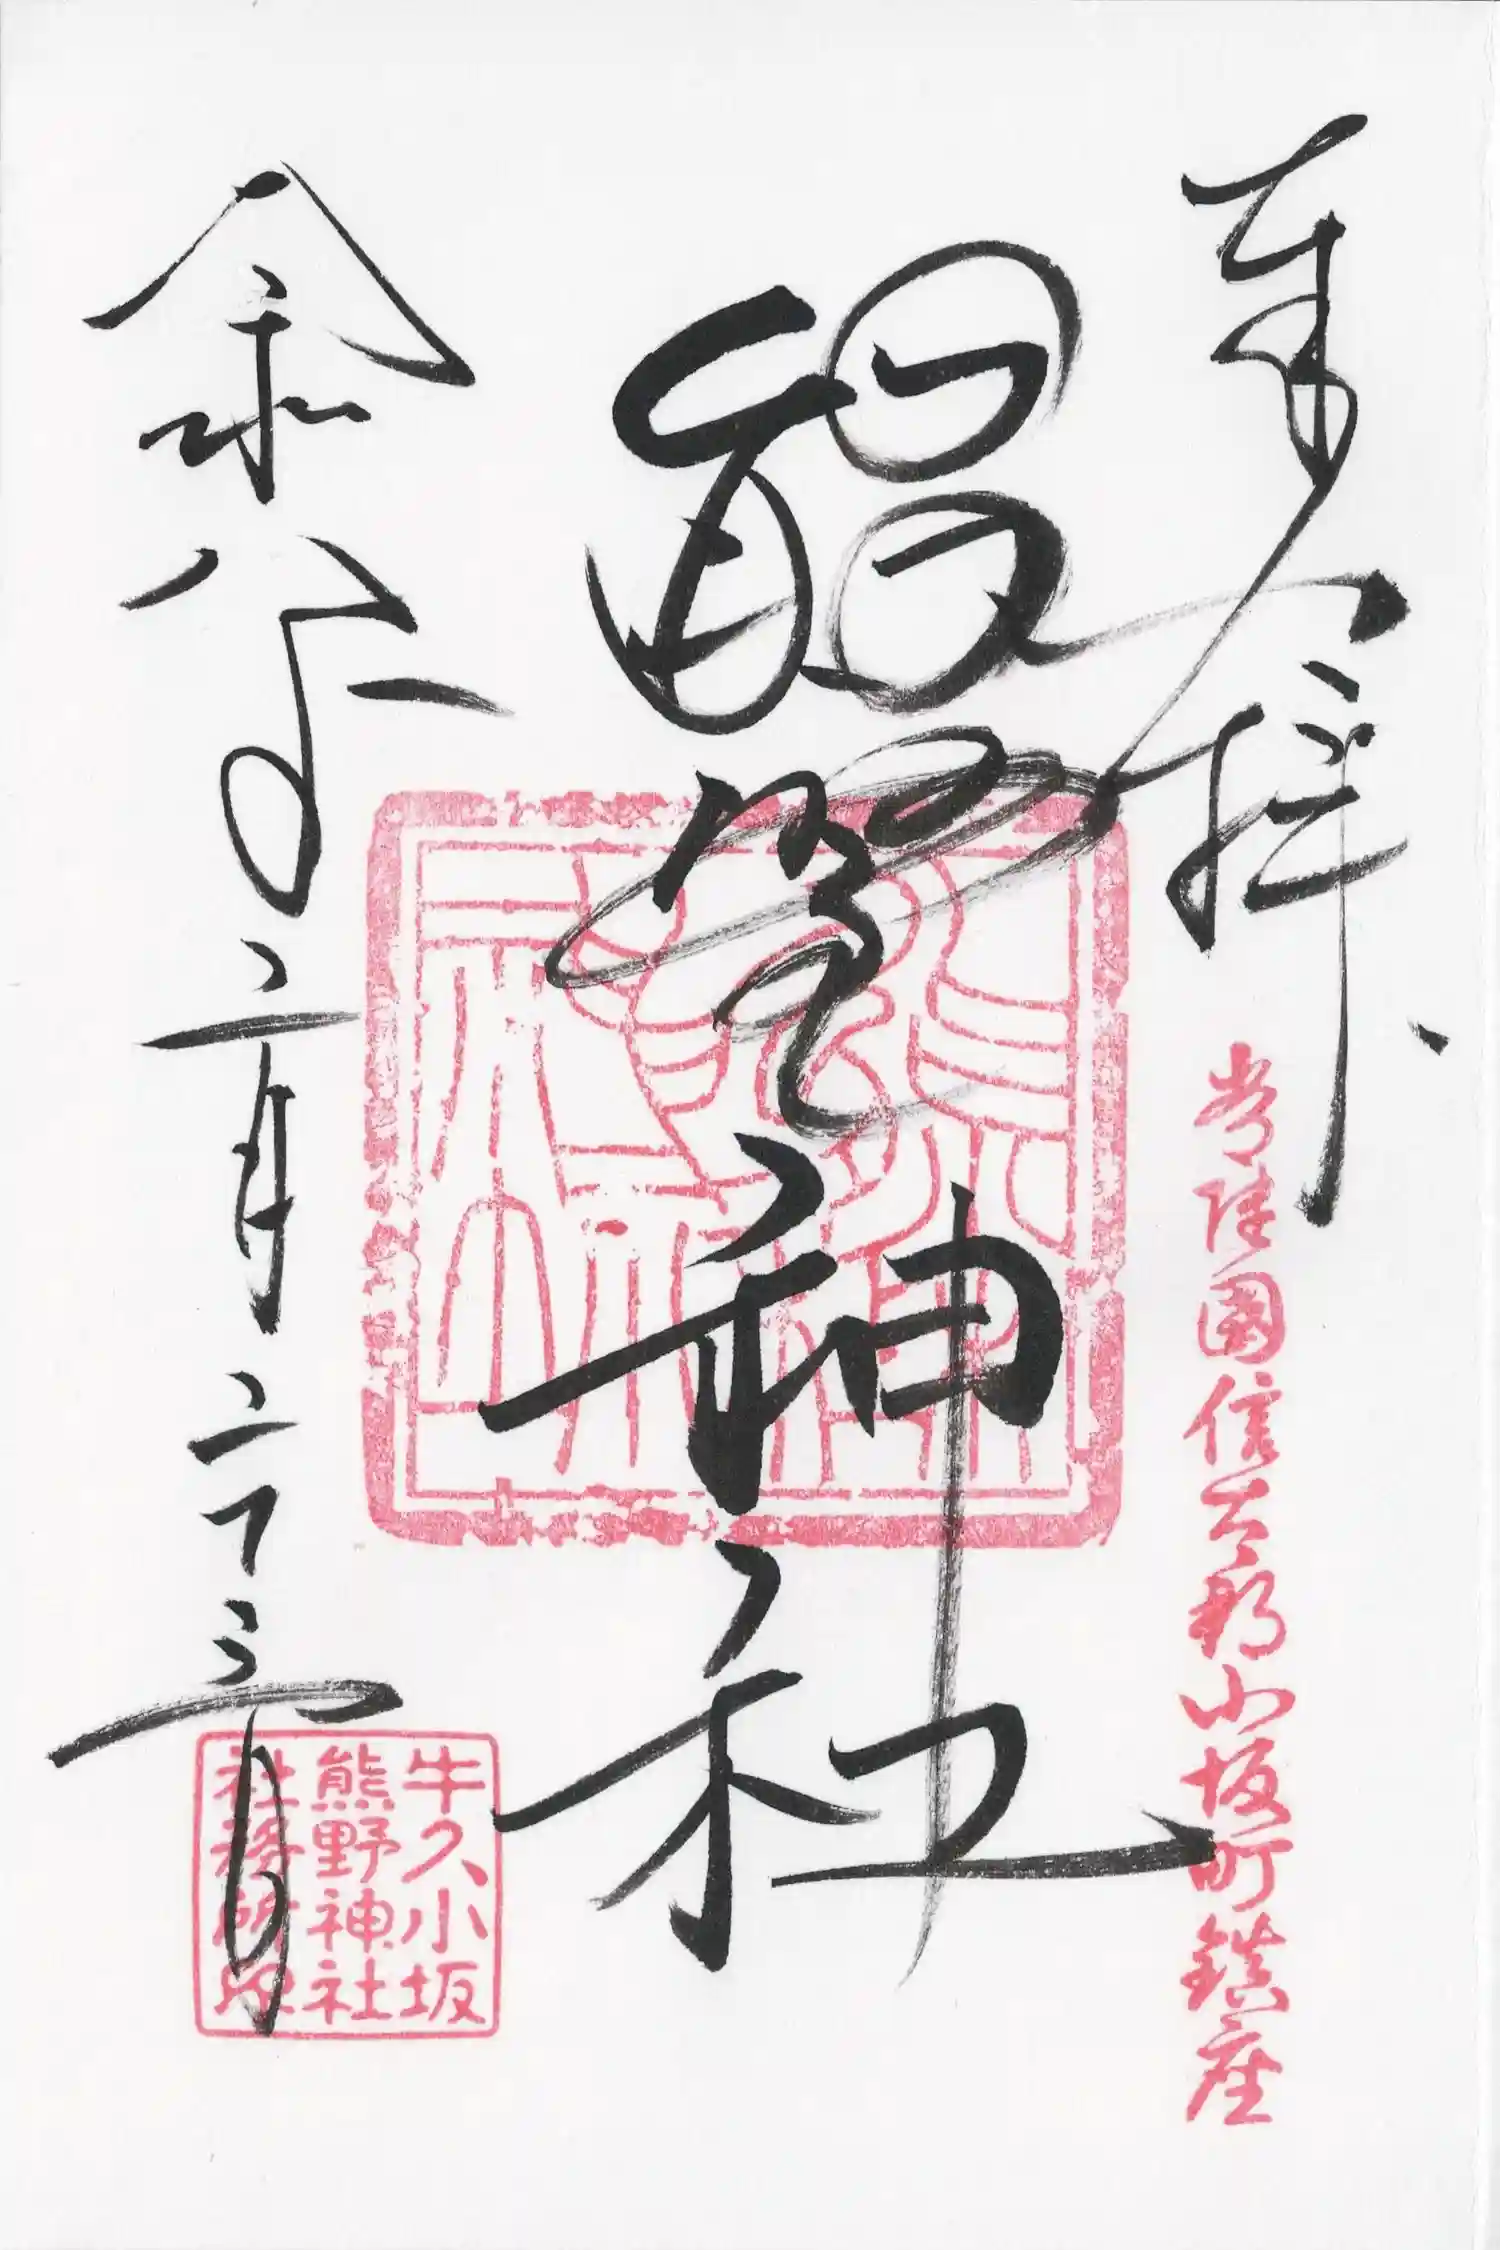 奉拝
常陸國信太郡小坂町鎮座
熊野神社
令和八年二月二十三日
牛久小坂
熊野神社
社務所印